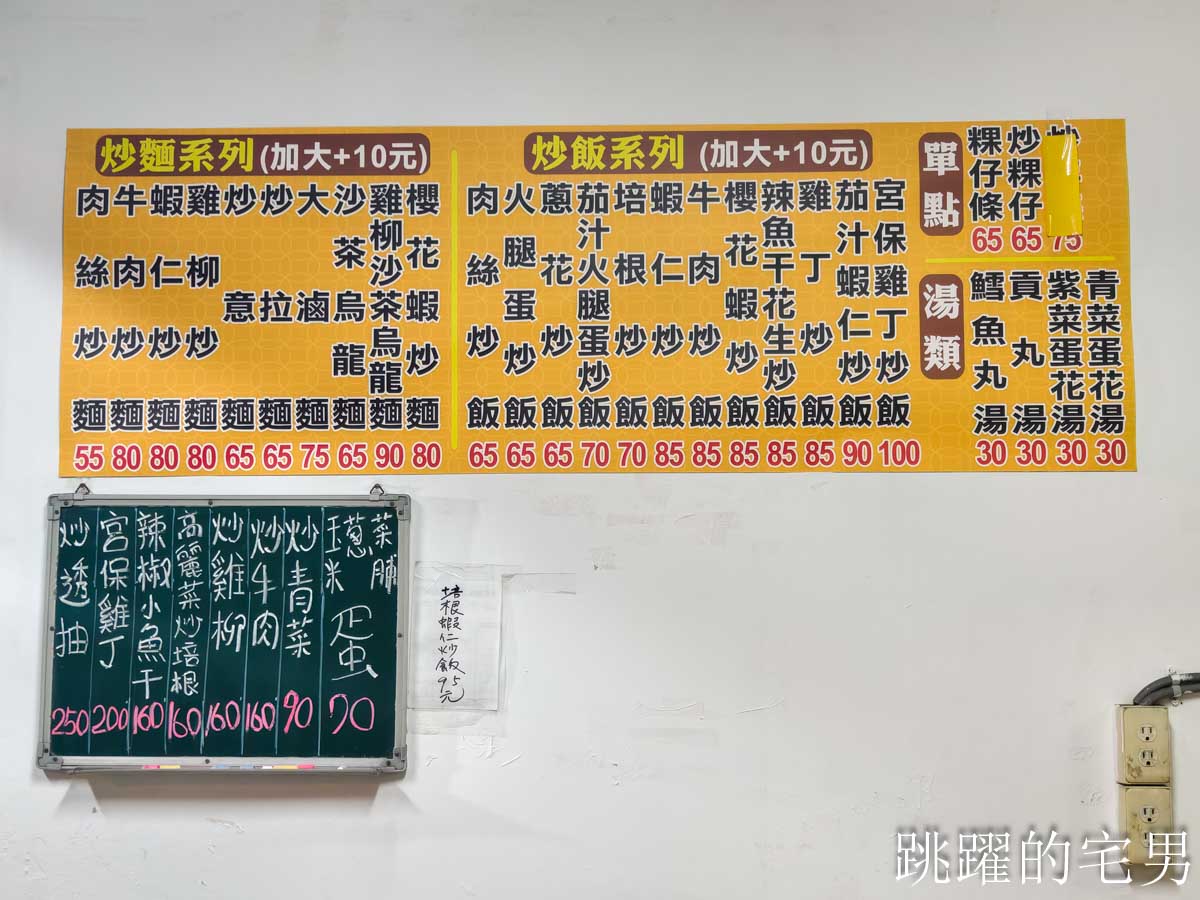 炒麵系列(加大+10元)
肉絲炒麵 55
牛肉炒麵 80
蝦仁炒麵 80
雞柳炒麵 80
炒意麵 65
炒拉麵 65
大滷麵 75
沙茶烏龍麵 65
雞柳沙茶烏龍麵 90
櫻花蝦炒麵 80
炒飯系列 (加大+10元)
肉絲炒飯 65
火腿蛋炒飯 65
蔥花炒飯 65
茄汁火腿蛋炒飯 70
培根炒飯 70
蝦仁炒飯 85
牛肉炒飯 85
櫻花蝦炒飯 85
辣魚干花生炒飯 85
雞丁炒飯 85
茄汁蝦仁炒飯 90
宮保雞丁炒飯 100
單點
粿仔條 65
炒粿仔 65
75
湯類
鱈魚丸湯 30
貢丸湯 30
紫菜蛋花湯 30
青菜蛋花湯 30
炒透抽 250
宮保雞丁 200
辣椒小魚干 160
高麗菜炒培根 160
炒雞柳 160
炒牛肉 160
炒青菜 90
菜脯
蔥
玉米
蛋 70
培根蝦仁炒飯95元
跳躍的宅男